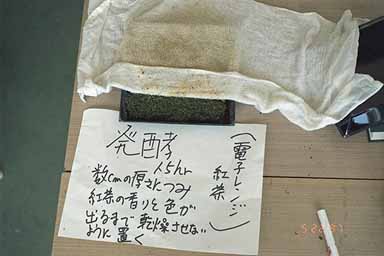 発酵
1.5hr
数cmの厚さにつみ
紅茶の香りと色が
出るまで乾燥させない
ように置く
(電子レンジ)
紅茶